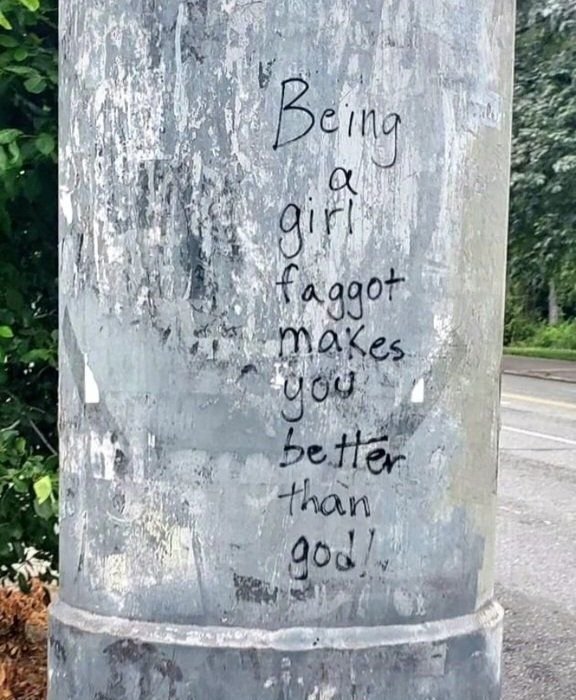 Being
a
girl
faggot
makes
you
better
than
god!